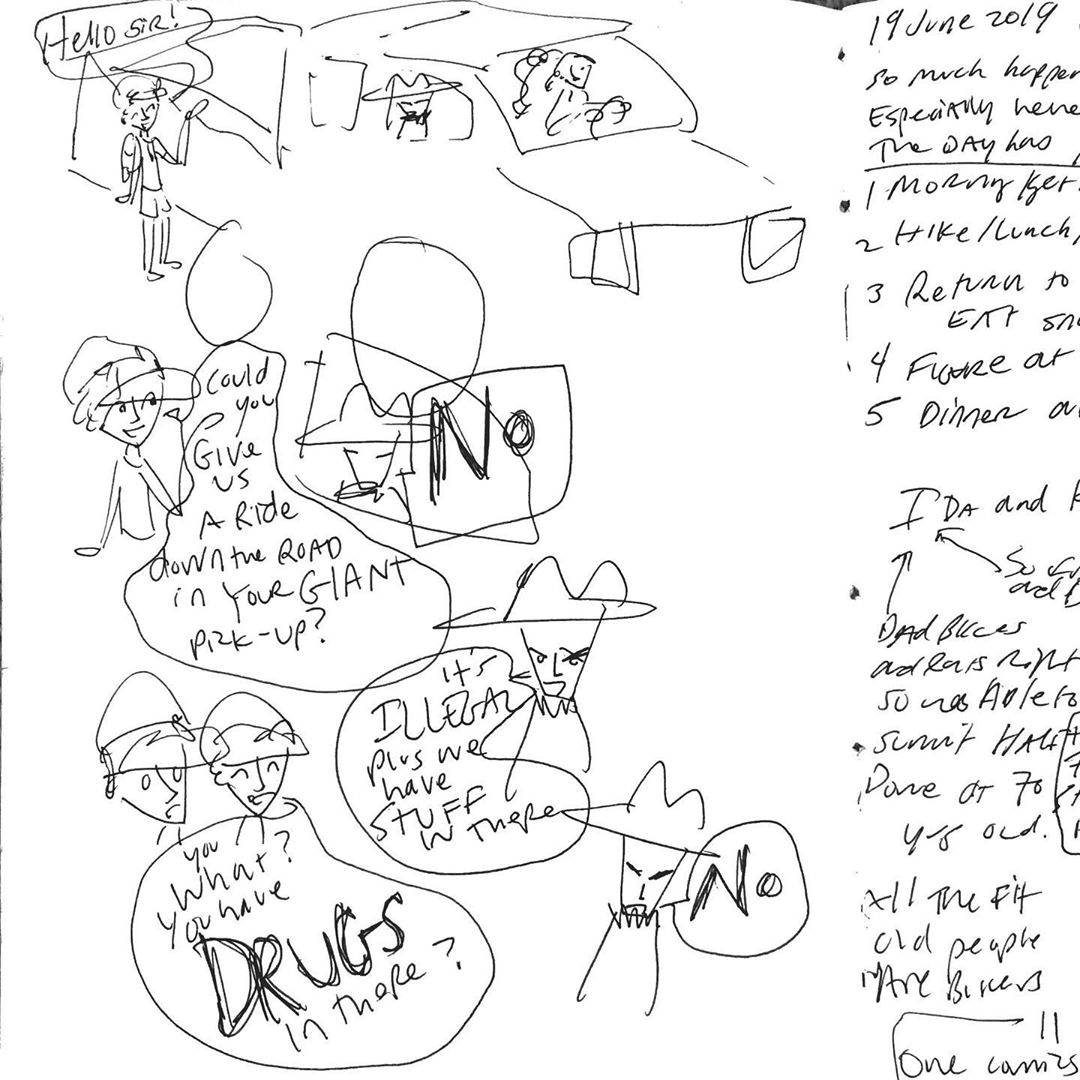 Hello sir!
Could
you
Give
us
A Ride
down the ROAD
in your GIANT
pick-up?
No
it's
ILLEGAL
plus we
have
STUFF
in there
you
What?
you have
DRUGS
in there?
No
19 June 2019
so much happen
Especially here
The DAY has
1 Morning
2 Hike/Lunch/
3 Return to
EAT
4 Figure out
5 Dinner
IDA and
So
DAd Bikes
so was Able to
summit HALF
Dome at 70
yrs old.
All The Fit
old people
Are Bikers
One comics